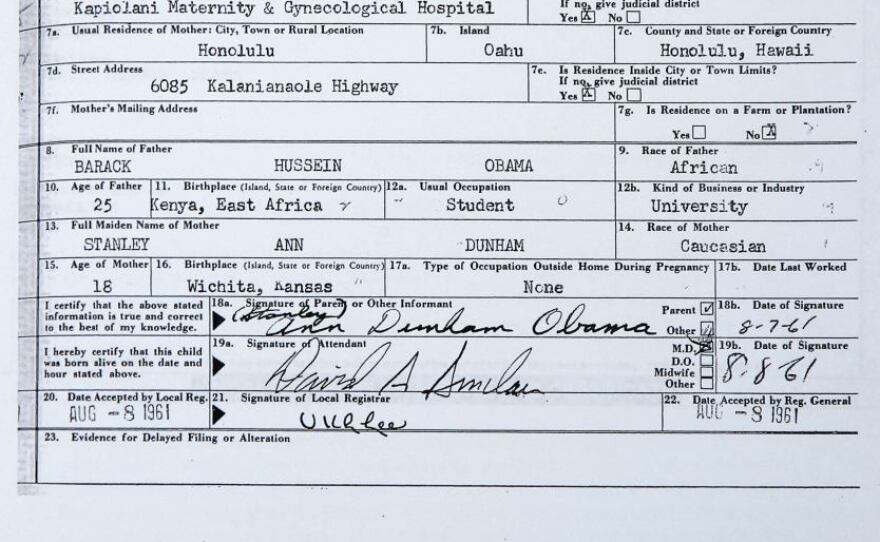 Kapiolani Maternity & Gynecological Hospital
If no, give judicial district
Yes X No
7a. Usual Residence of Mother: City, Town or Rural Location 7b. Island 7c. County and State or Foreign Country
Honolulu Oahu Honolulu, Hawaii
7d. Street Address 7e. Is Residence Inside City or Town Limits?
If no, give judicial district
6085 Kalanianaole Highway
Yes X No
7f. Mother's Mailing Address 7g. Is Residence on a Farm or Plantation?
Yes No X
8. Full Name of Father 9. Race of Father
BARACK HUSSEIN OBAMA African
10. Age of Father 11. Birthplace (Island, State or Foreign Country) 12a. Usual Occupation 12b. Kind of Business or Industry
25 Kenya, East Africa Student University
13. Full Maiden Name of Mother 14. Race of Mother
STANLEY ANN DUNHAM Caucasian
15. Age of Mother 16. Birthplace (Island, State or Foreign Country) 17a. Type of Occupation Outside Home During Pregnancy 17b. Date Last Worked
18 Wichita, Kansas None
I certify that the above stated
information is true and correct
to the best of my knowledge.
18a. Signature of Parent or Other Informant
(Stanley) Ann Dunham Obama
Parent
Other
18b. Date of Signature
8-7-61
I hereby certify that this child
was born alive on the date and
hour stated above.
19a. Signature of Attendant
David A Sinclair
M.D.
D.O.
Midwife
Other
19b. Date of Signature
8-8-61
20. Date Accepted by Local Reg. 21. Signature of Local Registrar 22. Date Accepted by Reg. General
AUG -8 1961 U K L Lee AUG -8 1961
23. Evidence for Delayed Filing or Alteration